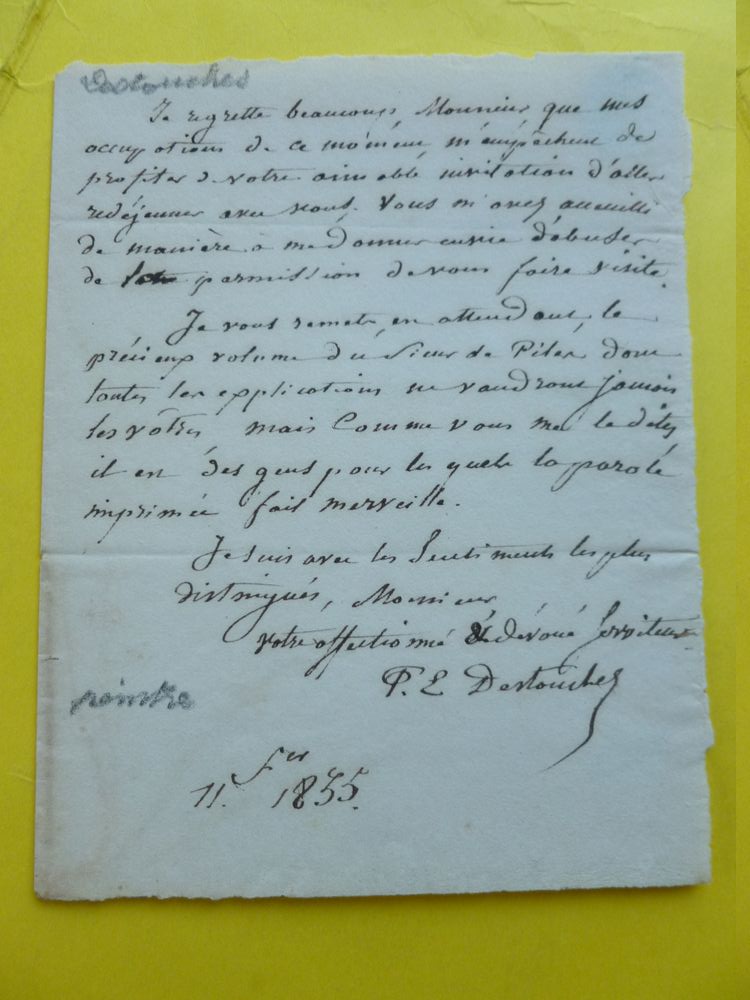 Destouches
Je regrette beaucoup, Monsieur que mes
occupations de ce moment, m'empêchent de
profiter de votre aimable invitation d'aller
redéjeuner avec vous. Vous m'avez accueilli
de manière à me donner envie d'abuser
de permission de vous faire visite.
Je vous remets, en attendant, le
précieux volume du Sieur de Piles dont
toutes les explications ne vaudront jamais
les vôtres mais comme vous me le dites
il est des gens pour les quels la parole
imprimée fait merveille.
Je suis avec les sentiments les plus
distingués, Monsieur
votre affectionné & dévoué serviteur
P. E Destouches
peintre
11. Fer 1835.